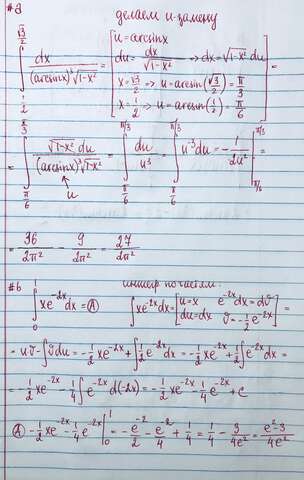 #a делаем u-замену
∫_{1/2}^{√3/2} dx / ((arcsinx)³√(1-x²)) = [u = arcsinx
du = dx/√(1-x²) ⇒ dx = √(1-x²) du
x = √3/2 ⇒ u = arcsin(√3/2) = π/3
x = 1/2 ⇒ u = arcsin(1/2) = π/6] =
= ∫_{π/6}^{π/3} √(1-x²) du / ((arcsinx)³√(1-x²)) = ∫_{π/6}^{π/3} du/u³ = ∫_{π/6}^{π/3} u⁻³du = -1/(2u²) |_{π/6}^{π/3} =
u
= 36/2π² - 9/2π² = 27/2π²
#b по частям.
∫_0^1 xe^{-2x}dx = Ⓐ ∫xe^{-2x}dx = [u=x e^{-2x}dx = dv
du=dx v = -1/2 e^{-2x}] =
= uv - ∫vdu = -1/2 xe^{-2x} + ∫1/2 e^{-2x}dx = -1/2 xe^{-2x} + 1/2 ∫e^{-2x}dx =
= -1/2 xe^{-2x} - 1/4 ∫e^{-2x}d(-2x) = -1/2 xe^{-2x} - 1/4 e^{-2x} + C
Ⓐ -1/2 xe^{-2x} - 1/4 e^{-2x} |_0^1 = -e^{-2}/2 - e^{-2}/4 + 1/4 = 1/4 - 3/4e² = (e²-3)/4e²